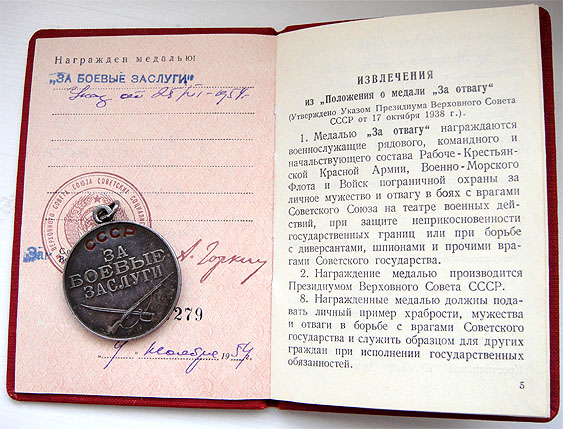 Награжден медалью:
„ЗА БОЕВЫЕ ЗАСЛУГИ"
Указ от
ВЕРХОВНОГО СОВЕТА СОЮЗА СОВЕТСКИХ
А. Горкин
СССР
ЗА
БОЕВЫЕ
ЗАСЛУГИ
279
9 ноября 1954 г.
ИЗВЛЕЧЕНИЯ
из „Положения о медали „За отвагу"
(Утверждено Указом Президиума Верховного Совета
СССР от 17 октября 1938 г.).
1. Медалью „За отвагу" награждаются
военнослужащие рядового, командного и
начальствующего состава Рабоче-Крестьян-
ской Красной Армии, Военно-Морского
Флота и Войск пограничной охраны за
личное мужество и отвагу в боях с врагами
Советского Союза на театре военных дей-
ствий, при защите неприкосновенности
государственных границ или при борьбе
с диверсантами, шпионами и прочими вра-
гами Советского государства.
2. Награждение медалью производится
Президиумом Верховного Совета СССР.
8. Награжденные медалью должны пода-
вать личный пример храбрости, мужества
и отваги в борьбе с врагами Советского
государства и служить образцом для других
граждан при исполнении государственных
обязанностей.
5